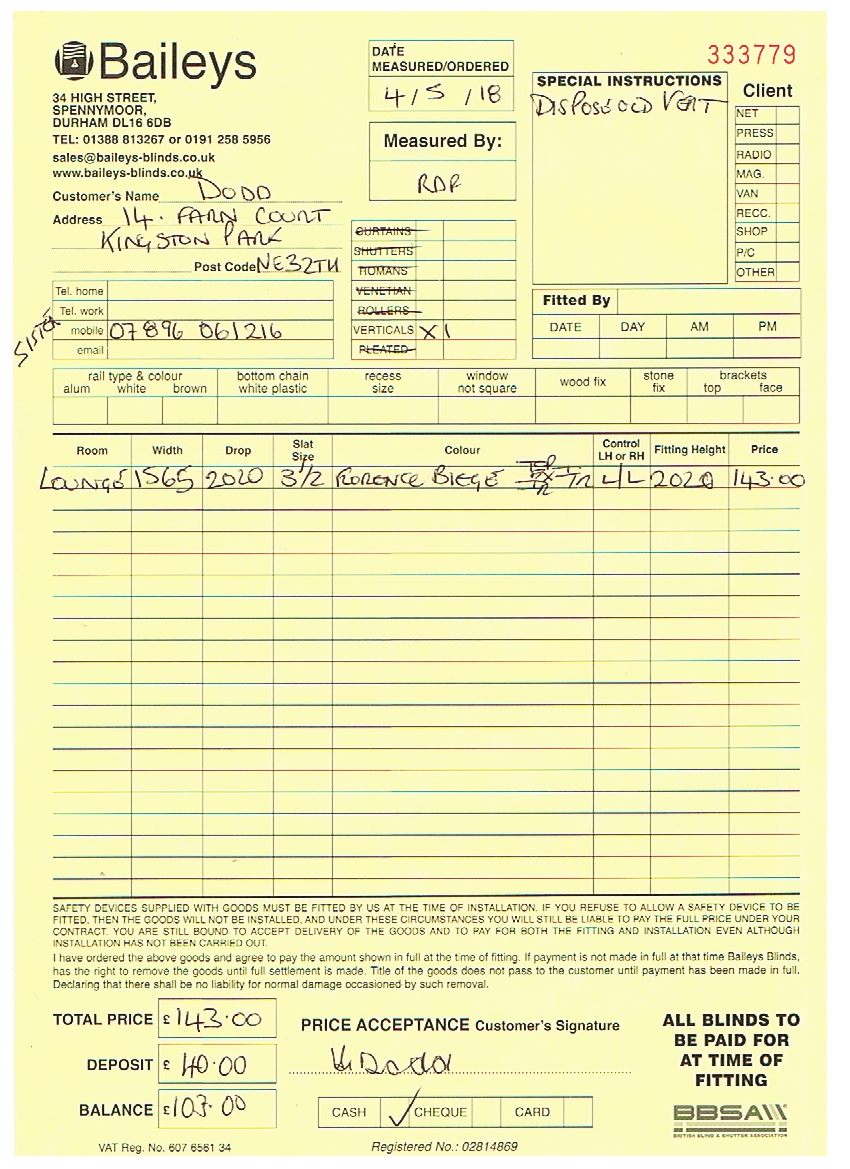 Baileys
34 HIGH STREET,
SPENNYMOOR,
DURHAM DL16 6DB
TEL: 01388 813267 or 0191 258 5956
sales@baileys-blinds.co.uk
www.baileys-blinds.co.uk
Customer's Name DODD
Address 14. FARN COURT
KINGSTON PARK
Post Code NE32TH
Tel. home
Tel. work
SISTER
mobile 07896 061216
email
DATE
MEASURED/ORDERED
4/5/18
Measured By:
RDR
CURTAINS
SHUTTERS
ROMANS
VENETIAN
ROLLERS
VERTICALS X 1
PLEATED
333779
SPECIAL INSTRUCTIONS
DISPOSE OLD VERT
Client
NET
PRESS
RADIO
MAG.
VAN
RECC.
SHOP
P/C
OTHER
Fitted By
DATE DAY AM PM
rail type & colour bottom chain recess window wood fix stone brackets
alum white brown white plastic size not square fix top face
Room Width Drop Slat Size Colour Control LH or RH Fitting Height Price
LOUNGE 1565 2020 3½ FLORENCE BIEGE L/L 2020 143.00
SAFETY DEVICES SUPPLIED WITH GOODS MUST BE FITTED BY US AT THE TIME OF INSTALLATION. IF YOU REFUSE TO ALLOW A SAFETY DEVICE TO BE
FITTED, THEN THE GOODS WILL NOT BE INSTALLED, AND UNDER THESE CIRCUMSTANCES YOU WILL STILL BE LIABLE TO PAY THE FULL PRICE UNDER YOUR
CONTRACT. YOU ARE STILL BOUND TO ACCEPT DELIVERY OF THE GOODS AND TO PAY FOR BOTH THE FITTING AND INSTALLATION EVEN ALTHOUGH
INSTALLATION HAS NOT BEEN CARRIED OUT.
I have ordered the above goods and agree to pay the amount shown in full at the time of fitting. If payment is not made in full at that time Baileys Blinds,
has the right to remove the goods until full settlement is made. Title of the goods does not pass to the customer until payment has been made in full.
Declaring that there shall be no liability for normal damage occasioned by such removal.
TOTAL PRICE £ 143.00
DEPOSIT £ 40.00
BALANCE £ 103.00
PRICE ACCEPTANCE Customer's Signature
Dodd
CASH ✓ CHEQUE CARD
ALL BLINDS TO
BE PAID FOR
AT TIME OF
FITTING
BBSA
BRITISH BLIND & SHUTTER ASSOCIATION
VAT Reg. No. 607 6561 34
Registered No.: 02814869